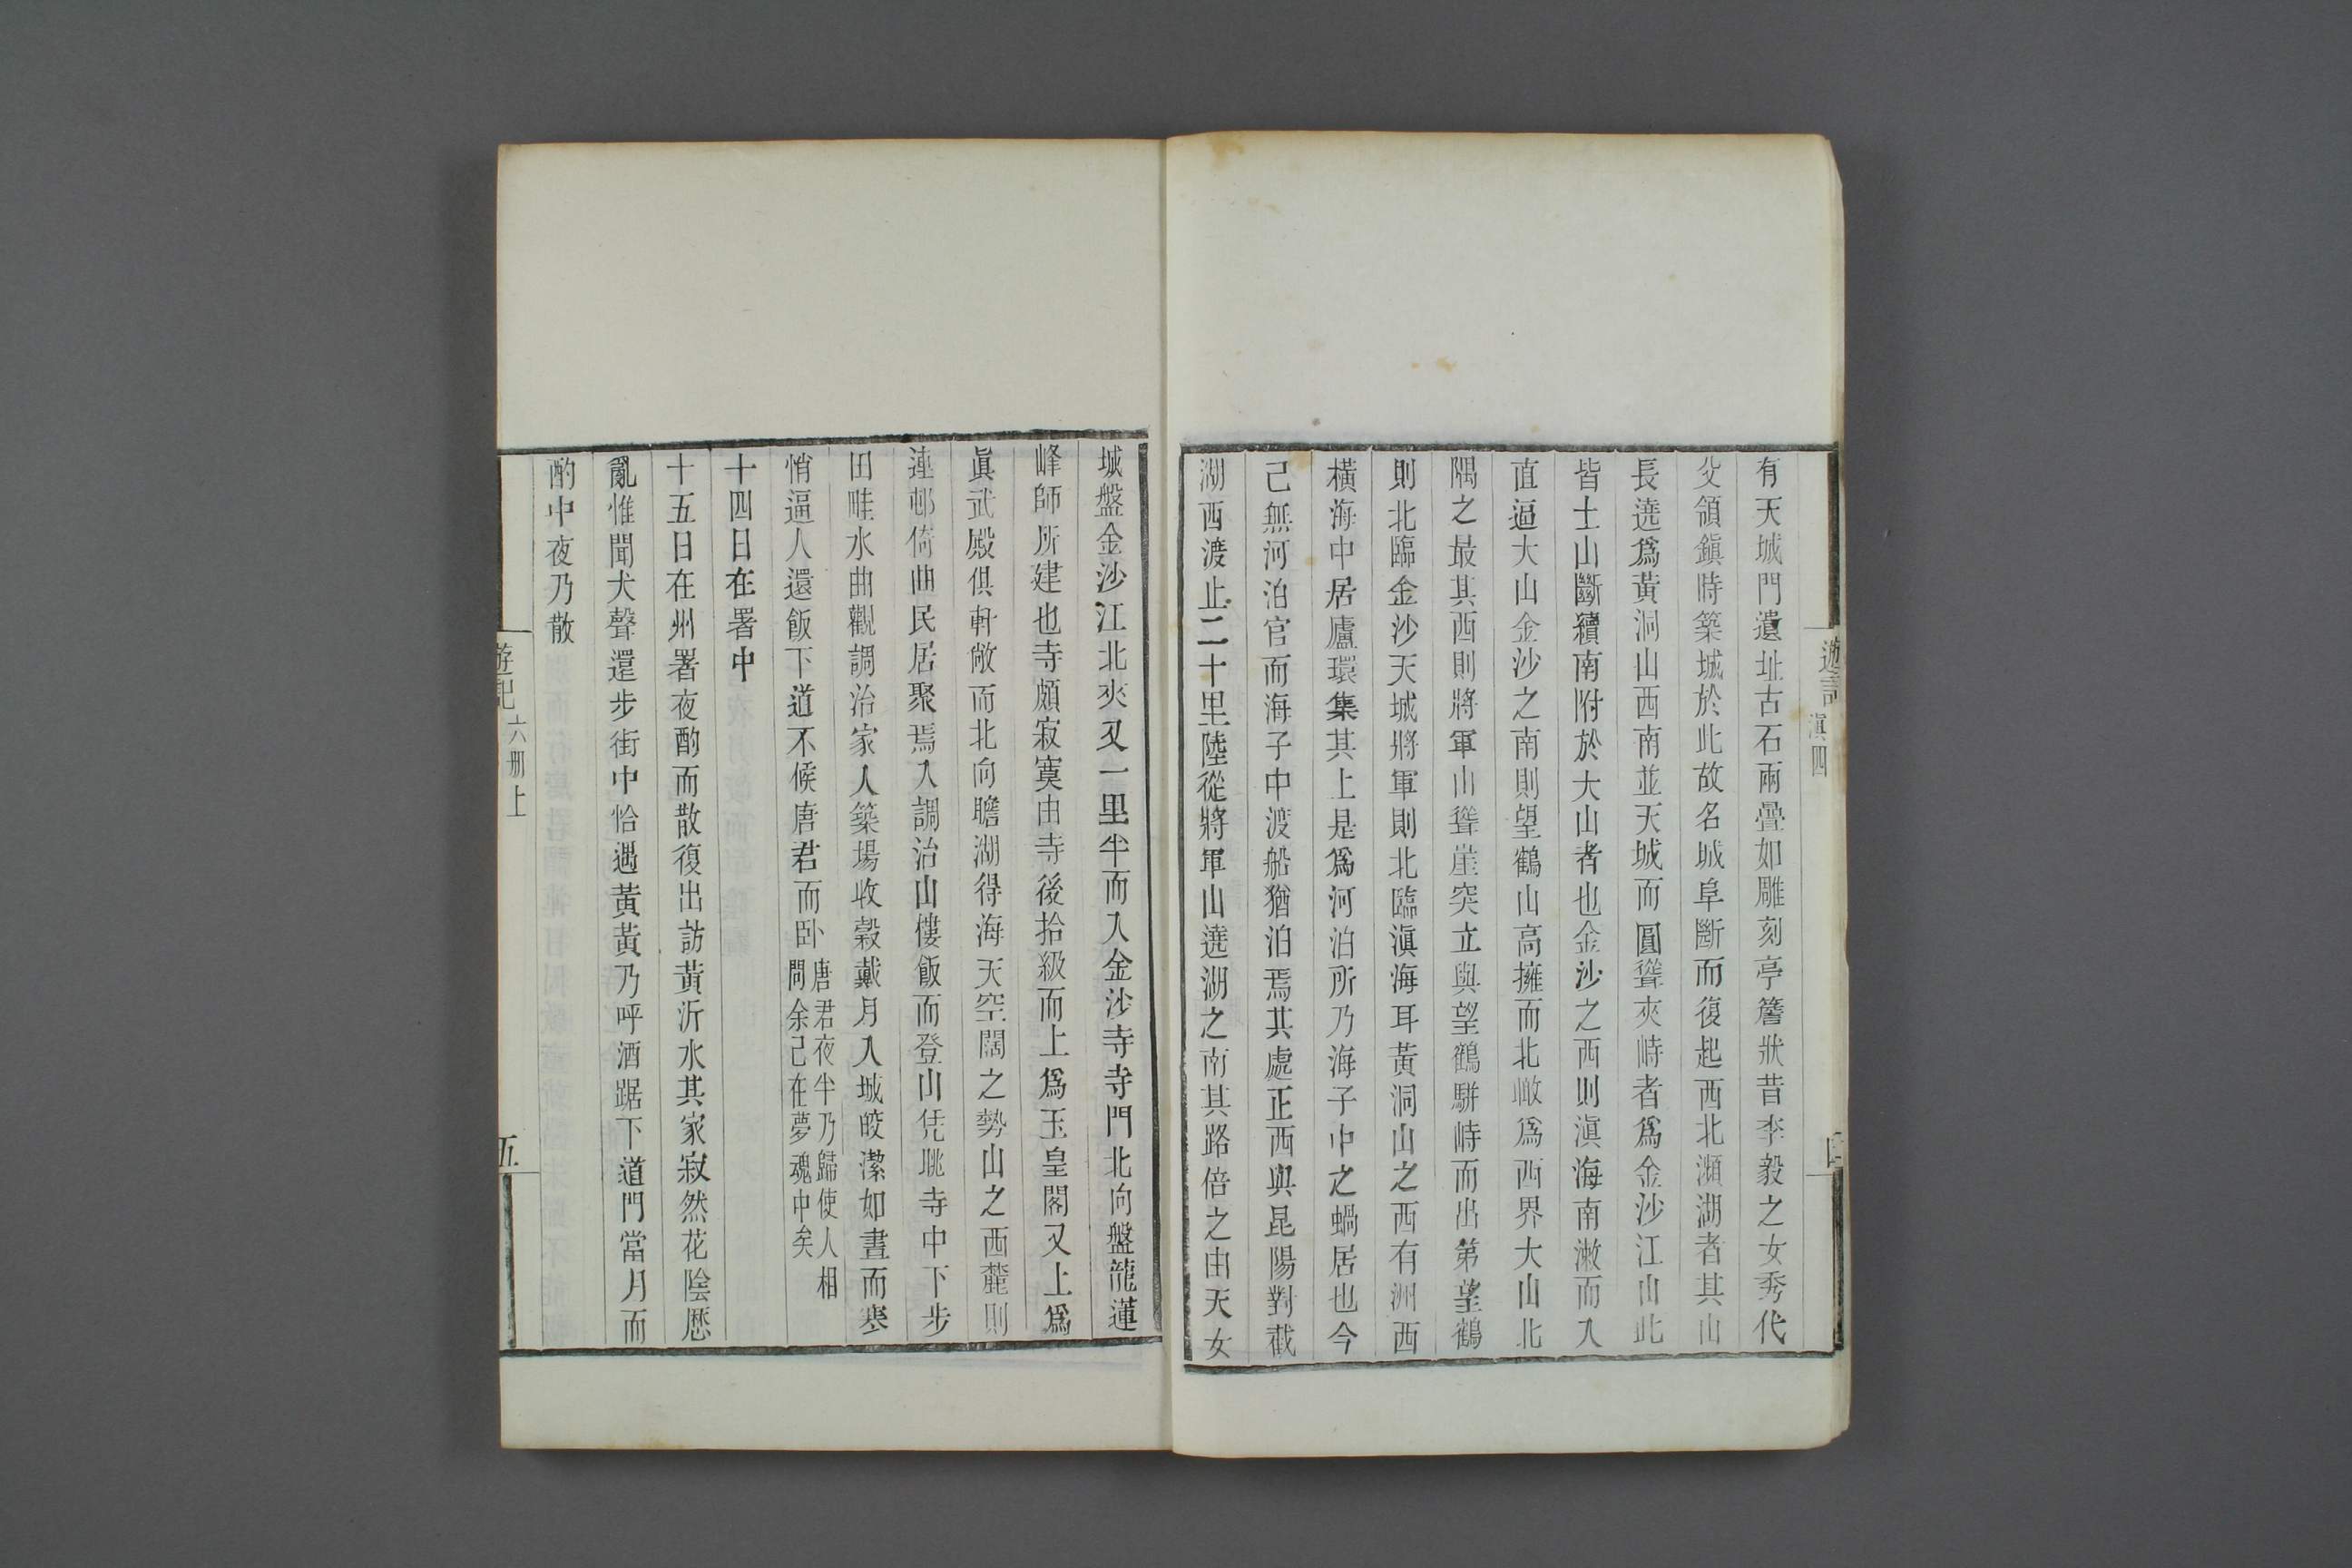 遊記
滇四
有天城門遺址古石兩疊如雕刻亭簷狀昔李毅之女秀代
父領鎭時築城於此故名城阜斷而復起西北瀕湖者其山
長遶爲黃洞山西南並天城而圓聳夾峙者爲金沙江山此
皆土山斷續南附於大山者也金沙之西則滇海南漱而入
直逼大山金沙之南則望鶴山高擁而北瞰爲西界大山北
隅之最其西則將軍山聳崖突立與望鶴駢峙而出第望鶴
則北臨金沙天城將軍則北臨滇海耳黃洞山之西有洲西
橫海中居廬環集其上是爲河泊所乃海子中之蝸居也今
已無河泊官而海子中渡船猶泊焉其處正西與昆陽對截
湖西渡止二十里陸從將軍山遶湖之南其路倍之由天女
城盤金沙江北夾又一里半而入金沙寺寺門北向盤龍蓮
峰師所建也寺頗寂寞由寺後拾級而上爲玉皇閣又上爲
眞武殿俱軒敞而北向瞻湖得海天空闊之勢山之西麓則
連邨倚曲民居聚焉入調治山樓飯而登山凭眺寺中下步
田畦水曲觀調治家人築場收穀戴月入城皎潔如晝而寒
悄逼人還飯下道不候唐君而卧唐君夜半乃歸使人相問余已在夢魂中矣
十四日在署中
十五日在州署夜酌而散復出訪黃沂水其家寂然花陰歷
亂惟聞犬聲還步街中恰遇黃黃乃呼酒踞下道門當月而
酌中夜乃散
遊記
六册上
五